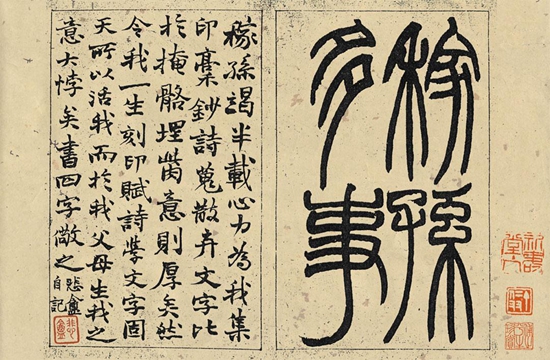 稼孫
多事
稼孫竭半載心力為我集
印稾鈔詩蒐散弃文字比
於掩骼埋胔意則厚矣然
令我一生刻印賦詩學文字固
天所以活我而於我父母生我之
意大悖矣書四字儆之悲盦自記
悲盦